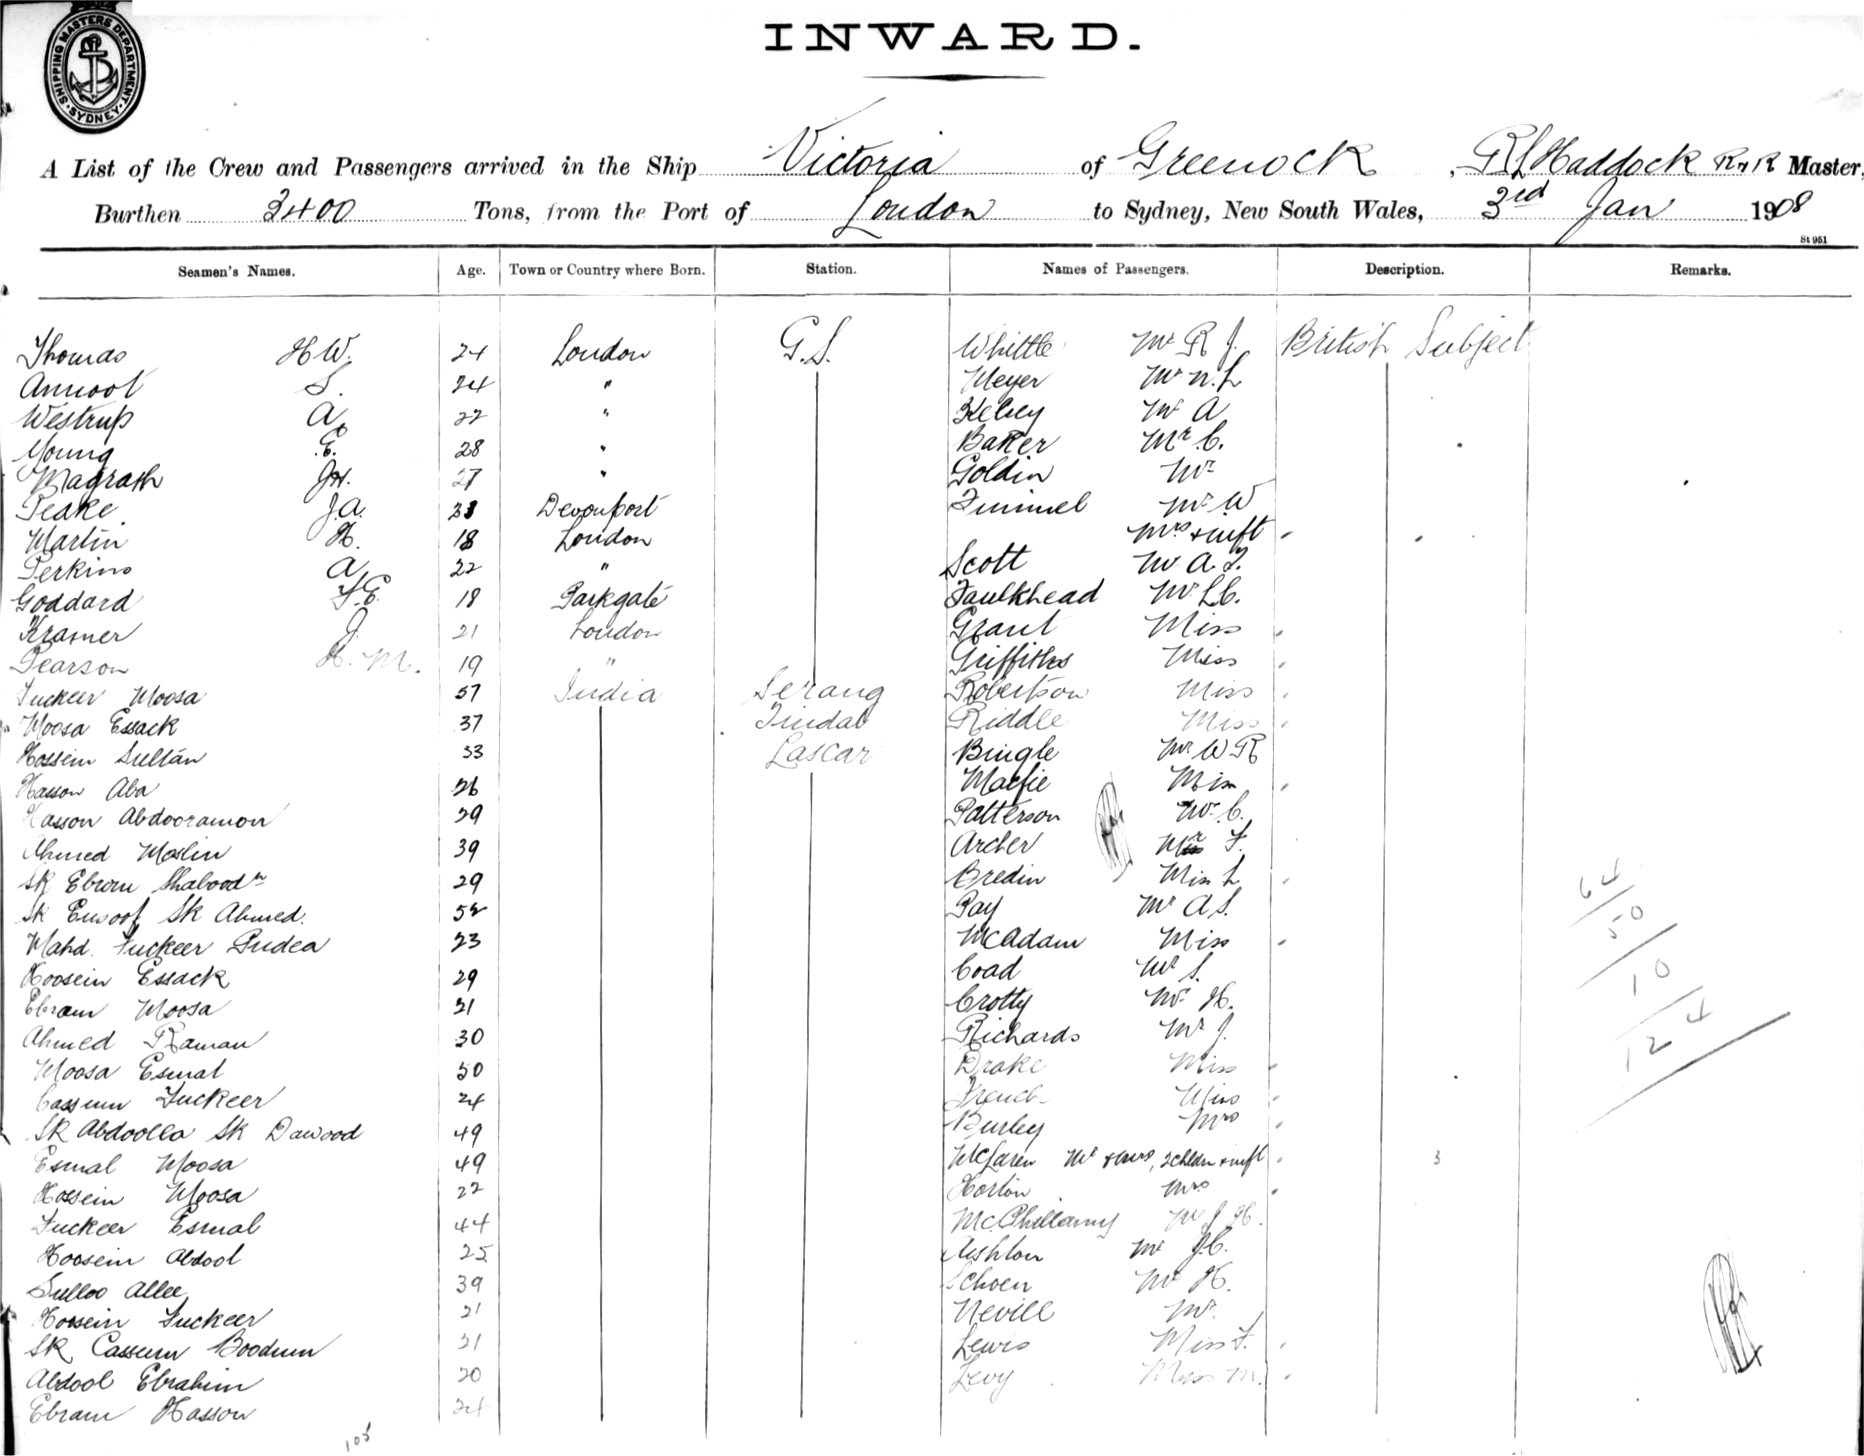 SHIPPING MASTERS DEPARTMENT SYDNEY
INWARD.
A List of the Crew and Passengers arrived in the Ship Victoria of Greenock, R L Haddock RNR Master,
Burthen 3400 Tons, from the Port of London to Sydney, New South Wales, 3rd Jan 1908
St 951
Seamen's Names. Age. Town or Country where Born. Station. Names of Passengers. Description. Remarks.
Thomas H W. 24 London G.S. Whittle Mr R J. British Subject
Annoot S. 24 " Meyer Mr N. L
Westrup A. 22 " Kelsey Mr A
Young E. 28 " Baker Mr C.
Magrath J H. 27 " Goldin Mr
Peake J.A. Devonport Fimmel Mr W
Martin H. 18 London Mrs + inft
Perkins A. 22 " Scott Mr A. F.
Goddard F. E. 18 Parkgate Faulkhead Mr L C.
Kramer J. 21 London Grant Miss
Pearson H. M. 19 " Griffiths Miss
Fuckeer Moosa 57 India Serang Robertson Miss
Moosa Essack 37 Tindal Riddle Miss
Hossein Sultan 33 Lascar Bingle Mr W R
Hasson Aba 26 Macfie Miss
Hasson Abdooramon 29 Patterson Mr C.
Ahmed Moslin 39 Archer Mr F.
Sk Ebram Shabood 29 Bredin Miss L
Sk Eusoof Sk Ahmed. 52 Pay Mr A S.
Mahd. Fuckeer Pudea 23 McAdam Miss
Hoosein Essack 29 Coad Mr S.
Ebram Moosa 21 Crotty Mr H.
Ahmed Raman 30 Richards Mr J.
Moosa Esmal 50 Drake Miss
Cassum Fuckeer 24 French Miss
Sk Abdoolla Sk Dawood 49 Burley Mrs
Esmal Moosa 49 McLaren Mr & Mrs, 2 childn + inft 3
Hossein Moosa 22 Horton Mrs
Fuckeer Esmal 44 McPhillamy Mr J H.
Hoosein Abdool 25 Ashton Mr J.C.
Sulloo Allee 39 Schoen Mr H.
Hossein Fuckeer 21 Nevill Mr.
Sk Cassum Boodun 31 Lewis Miss F.
Abdool Ebrahim 20 Levy Miss M.
Ebram Hasson 24
105
64
50
10
124